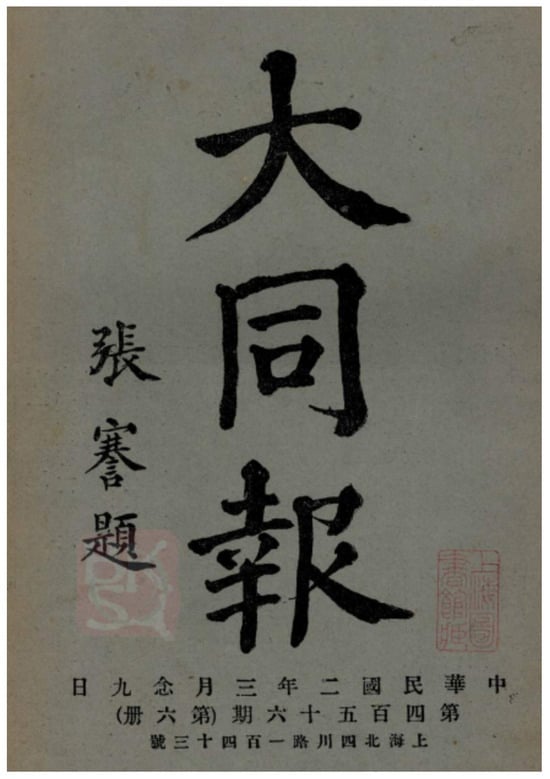 大同報
張謇題
中華民國二年三月念九日
第四百五十六期(第六册)
上海北四川路一百四十三號